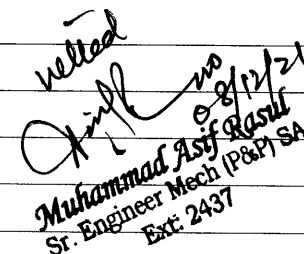 08/12/21
Muhammad Asif Rasul
Sr. Engineer Mech (P&P) SA
Ext: 2437